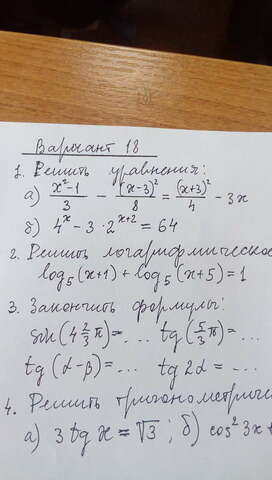 Вариант 18
1. Решить уравнения:
а) (x²-1)/3 - (x-3)²/8 = (x+3)²/4 - 3x
б) 4ˣ - 3 · 2ˣ⁺² = 64
2. Решить логарифмическое
log₅(x+1) + log₅(x+5) = 1
3. Закончить формулы:
sin(4 2/3 π) = ... tg(5/3 π) = ...
tg(α-β) = ... tg 2α = ...
4. Решить тригонометричес
а) 3 tg x = √3 ; б) cos² 3x +